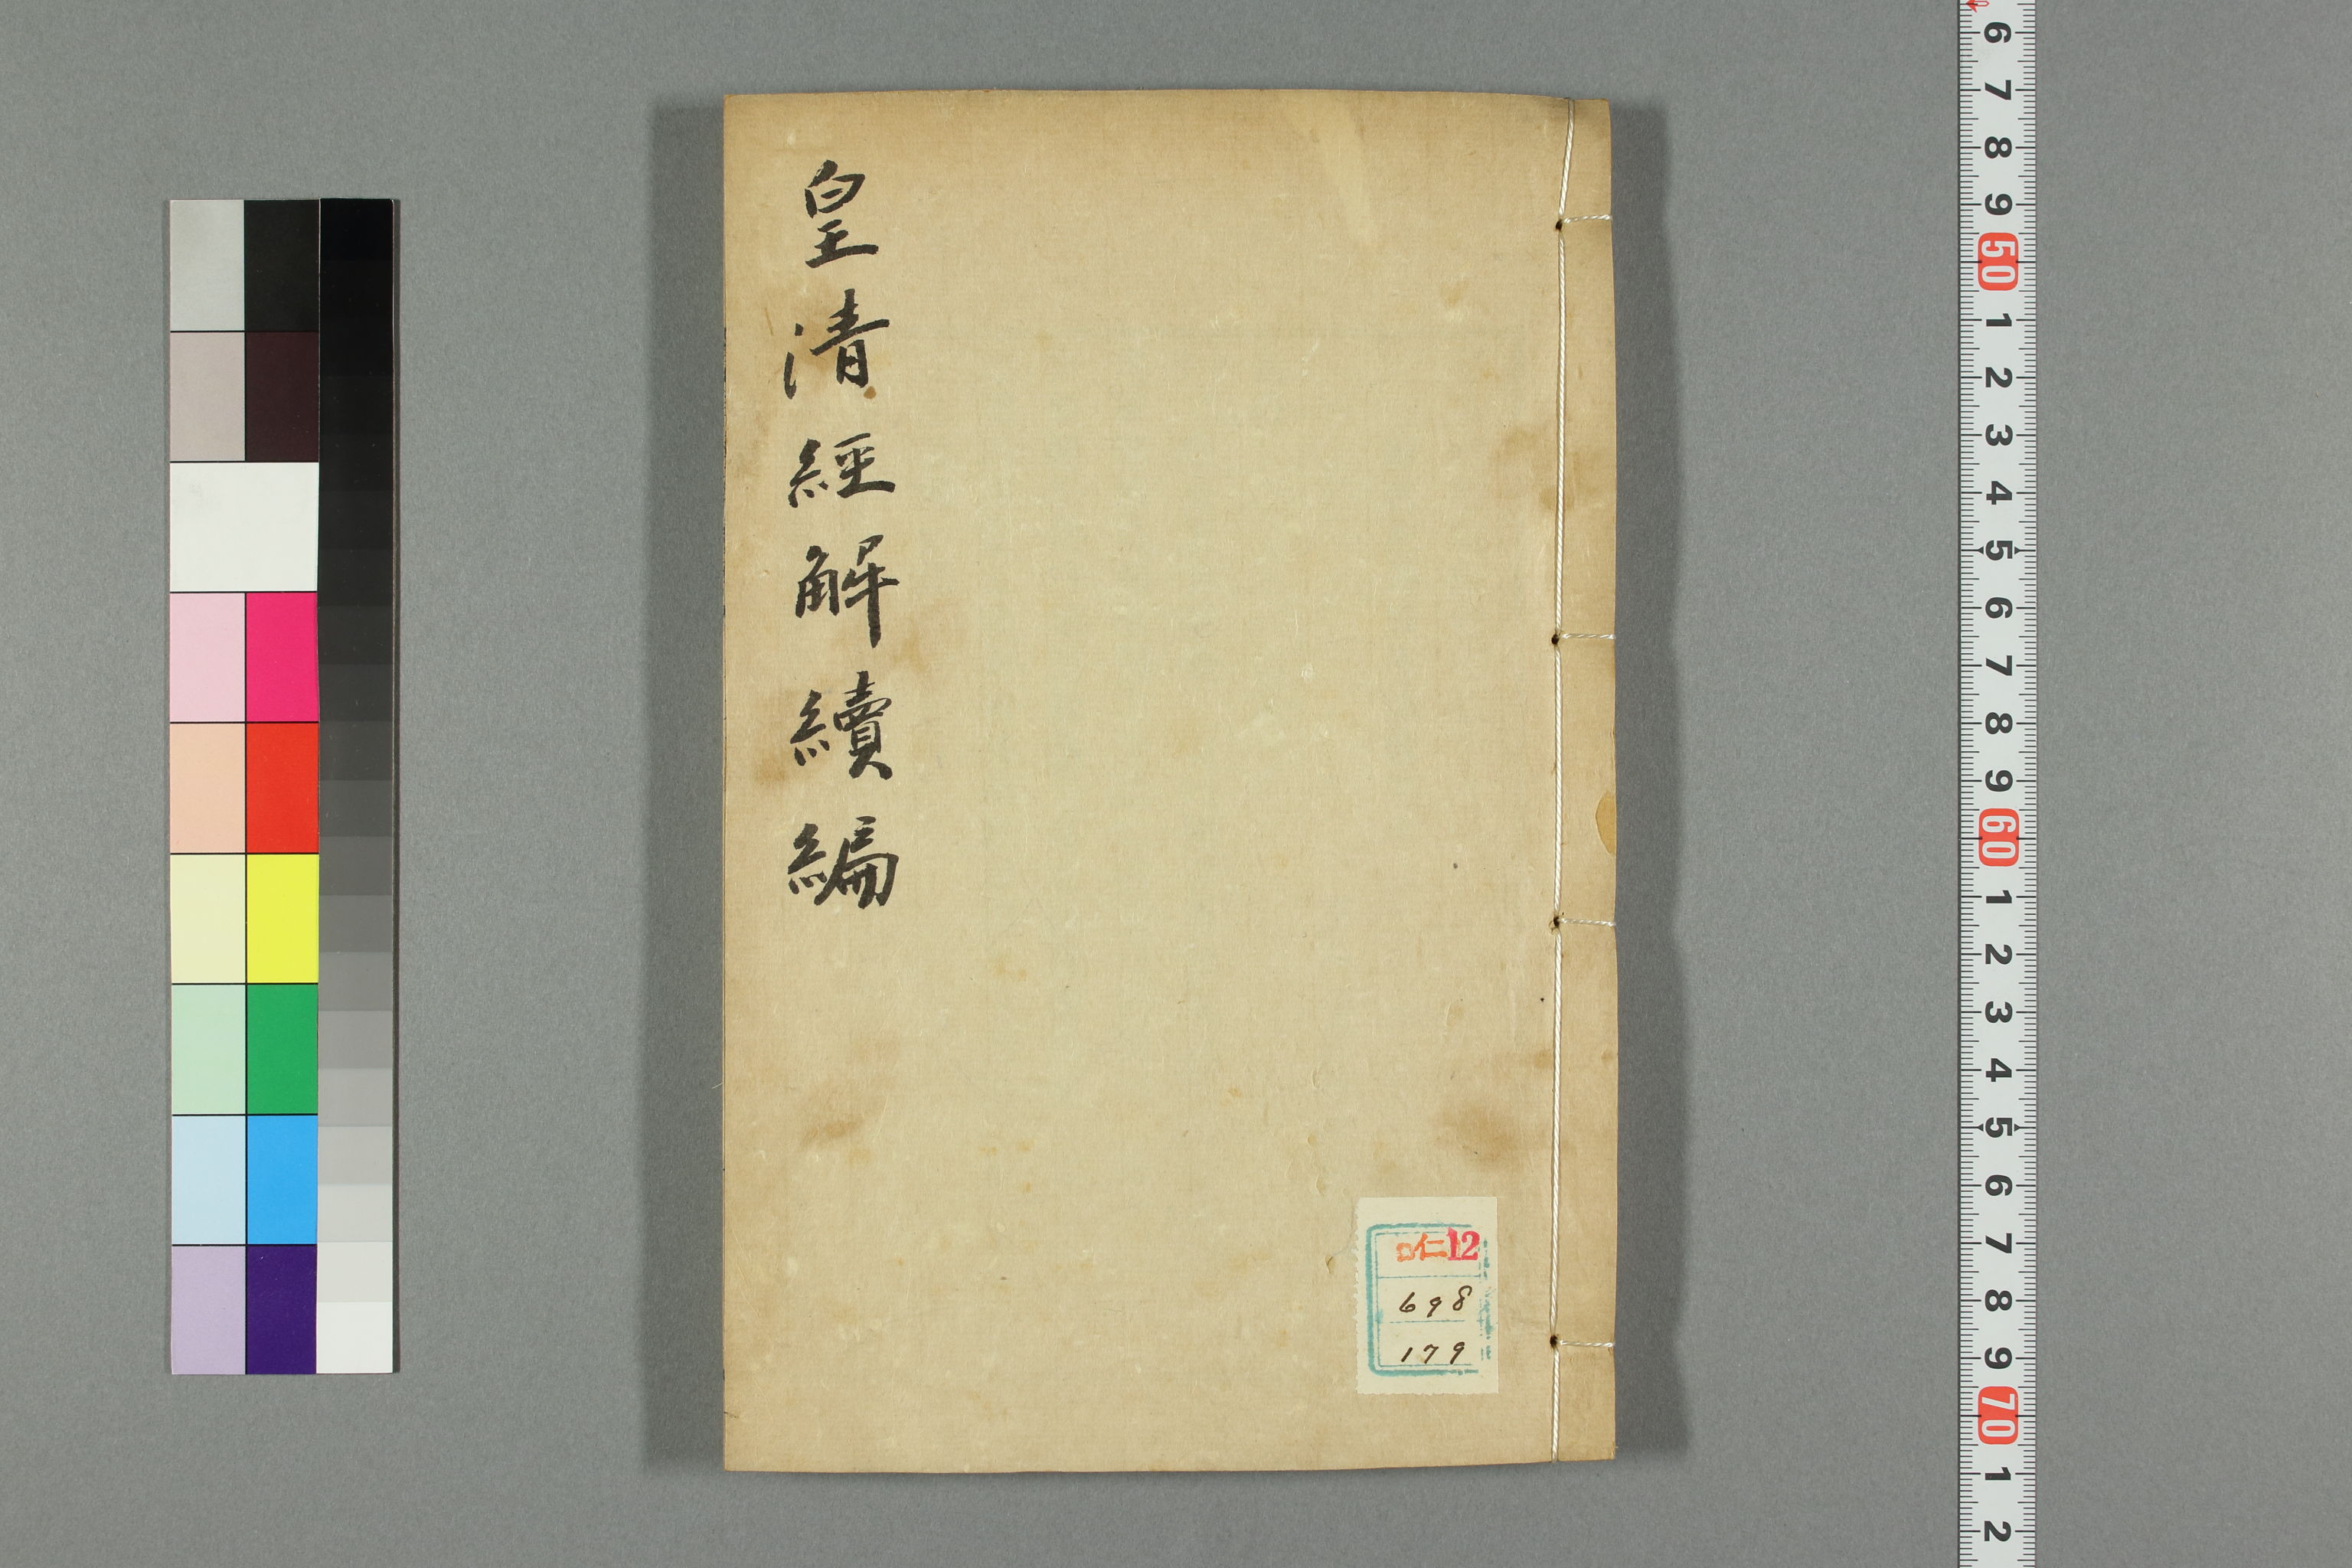 皇清經解續編
ロ仁12
698
179
6
7
8
9
50
1
2
3
4
5
6
7
8
9
60
1
2
3
4
5
6
7
8
9
70
1
2